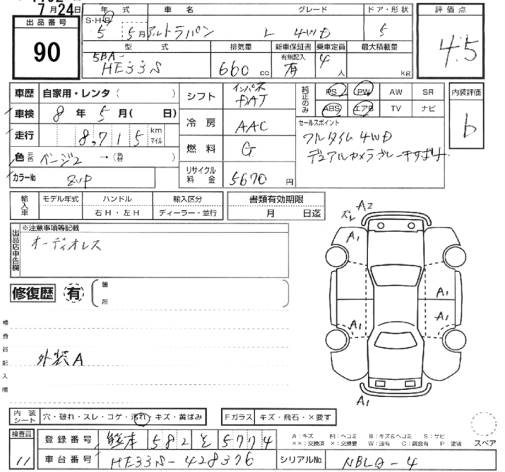 7/24
出品番号 90
年式 車名 グレード ドア・形状 評価点
S・H・R 5年 5月 アルトラパン L 4WD 5 4.5
型式 排気量 新車保証書 乗車定員 最大積載量
5BA-HE33S 660cc 有無記入 有 4人 kg
車歴 自家用・レンタ( )
車検 8年 5月( 日)
走行 8,715 km マイル
色 ベージュ2 →(替 )
カラーNo ZVP
シフト インパネ FAT
冷房 AAC
燃料 G
リサイクル料金 5670
純正のみ PS PW AW SR
ABS エアB TV ナビ
内装評価 b
セールスポイント
フルタイム4WD
デュアルカメラブレーキサポート
輸入車 モデル年式 ハンドル 輸入区分
年 右H・左H ディーラー・並行
書類有効期限
月 日迄
出品店申告欄 ※注意事項等記載
オーディオレス
修復歴 有
箇所
検査員記入欄
外装A
A2
A1
A1
A1
A1
内装シート 穴・破れ・スレ・コゲ・汚れ・キズ・黄ばみ
Fガラス キズ・飛石・×要す
検査員 11
登録番号 熊本 582 を 5774
車台番号 HE33S-428376
シリアルNo NBLQ-4
スペア